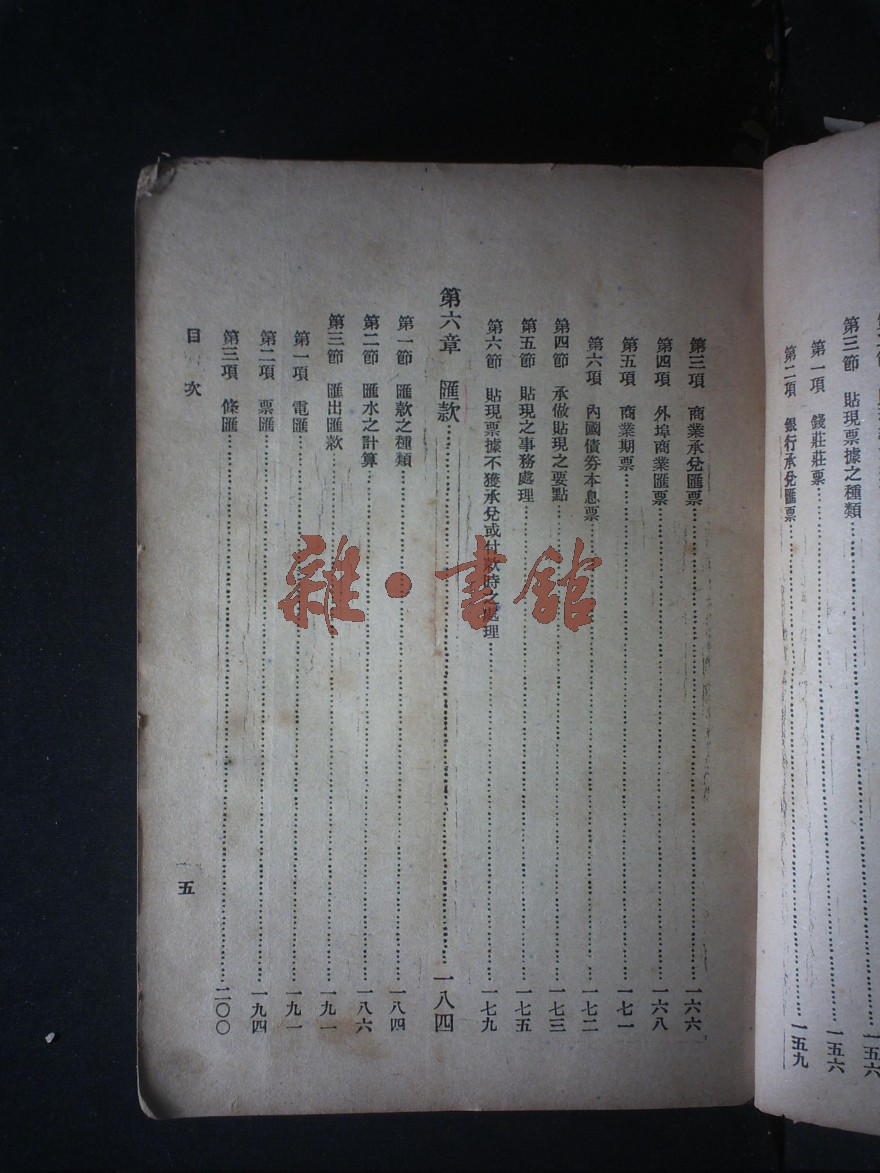 第三節　貼現票據之種類……一五六
第一項　錢莊莊票……一五六
第二項　銀行承兌匯票……一五九
第三項　商業承兌匯票……一六六
第四項　外埠商業匯票……一六八
第五項　商業期票……一七一
第六項　內國債券本息票……一七二
第四節　承做貼現之要點……一七三
第五節　貼現之事務處理……一七五
第六節　貼現票據不獲承兌或付款時之處理……一七九
第六章　匯款……一八四
第一節　匯款之種類……一八四
第二節　匯水之計算……一八六
第三節　匯出匯款……一九一
第一項　電匯……一九一
第二項　票匯……一九四
第三項　條匯……二〇〇
目次
五
雜·書館